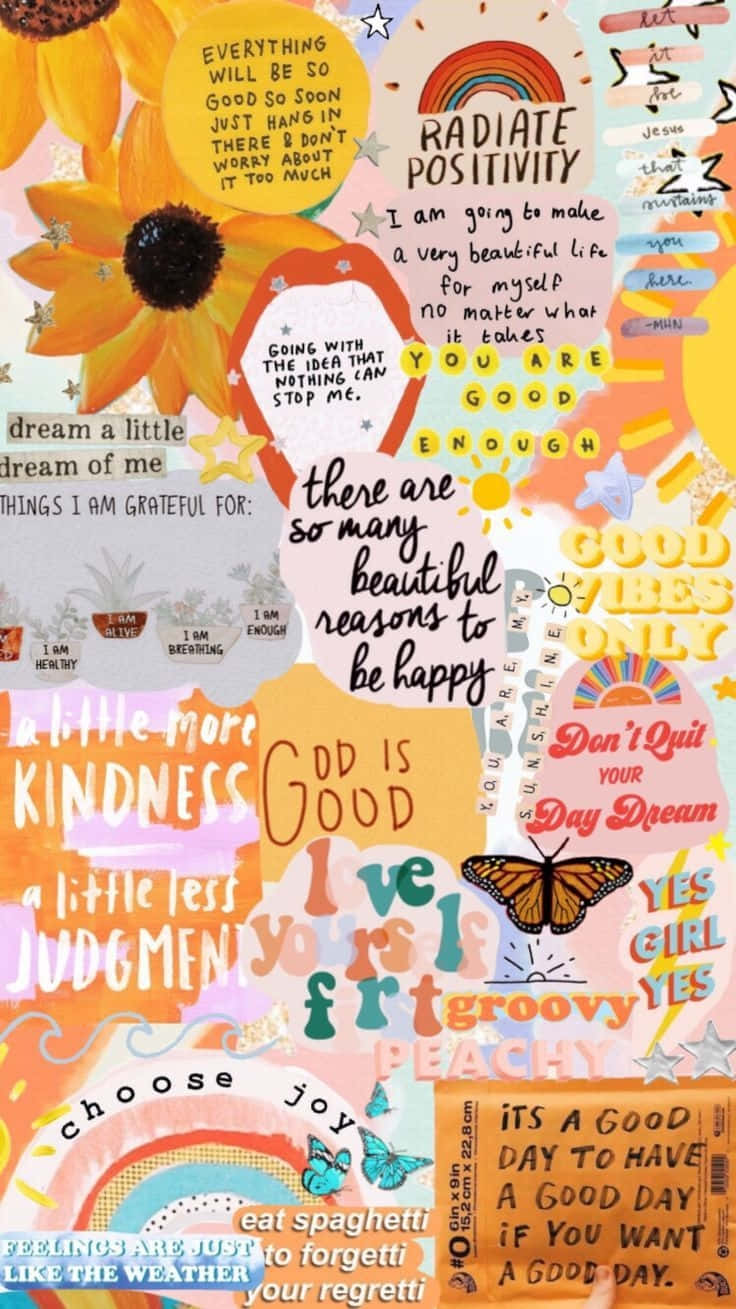 EVERYTHING
WILL BE SO
GOOD SO SOON
JUST HANG IN
THERE & DON'T
WORRY ABOUT
IT TOO MUCH
RADIATE
POSITIVITY
let
it
be
Jesus
that
sustains
you
here.
-MHN
I am going to make
a very beautiful life
for myself
no matter what
it takes
GOING WITH
THE IDEA THAT
NOTHING CAN
STOP ME.
YOU ARE
GOOD
ENOUGH
dream a little
dream of me
THINGS I AM GRATEFUL FOR:
I AM
HEALTHY
I AM
ALIVE
I AM
BREATHING
I AM
ENOUGH
there are
so many
beautiful
reasons to
be happy
GOOD
VIBES
ONLY
YOU ARE MY
SUNSHINE
Don't Quit
YOUR
Day Dream
a little more
KINDNESS
a little less
JUDGMENT
GOD IS
GOOD
love
yourself
frt
YES
GIRL
YES
groovy
PEACHY
choose joy
FEELINGS ARE JUST
LIKE THE WEATHER
eat spaghetti
to forgetti
your regretti
#0 6in x 9in
15,2 cm x 22,8 cm
iTS A GOOD
DAY TO HAVE
A GOOD DAY
iF YOU WANT
A GOOD DAY.